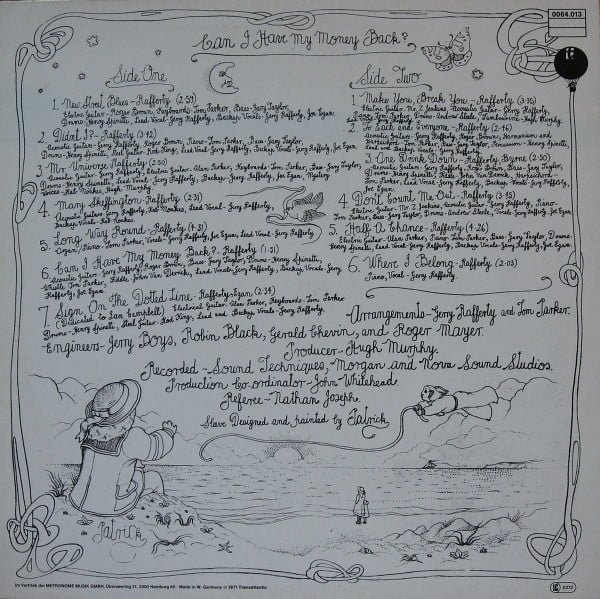 0064.013
Can I Have My Money Back?
Side One
1. New Street Blues - Rafferty (2:59)
Electric Guitar - Roger Brown, Keyboards - Tom Parker, Bass - Jerry Taylor,
Drums - Henry Spinetti, Lead Vocal - Gerry Rafferty, Backup Vocals - Gerry Rafferty, Joe Egan.
2. Didn't I? - Rafferty (3:42)
Acoustic Guitar - Gerry Rafferty, Roger Brown, Piano - Tom Parker, Bass - Jerry Taylor,
Drums - Henry Spinetti, Steel Guitar - Rod King, Lead Vocal - Gerry Rafferty, Backup Vocals - Gerry Rafferty, Joe Egan.
3. Mr. Universe - Rafferty (2:50)
Acoustic Guitar - Gerry Rafferty, Electric Guitar - Alan Parker, Keyboards - Tom Parker, Bass - Jerry Taylor,
Drums - Henry Spinetti, Lead Vocal - Gerry Rafferty, Backup - Gerry Rafferty, Joe Egan, Mystery
Voices - Rab Noakes, Hugh Murphy.
4. Mary Skeffington - Rafferty (2:31)
Acoustic Guitar - Gerry Rafferty, Rab Noakes, Lead Vocal - Gerry Rafferty,
Backup Vocals - Rab Noakes
5. Long Way Round - Rafferty (4:31)
Organ/Piano - Tom Parker, Vocals - Gerry Rafferty, Joe Egan, Lead Vocal - Gerry Rafferty
6. Can I Have My Money Back? - Rafferty (1:51)
Acoustic Guitar - Gerry Rafferty, Roger Brown, Bass - Jerry Taylor, Drums - Henry Spinetti,
Whistle Tom Parker, Fiddle - John Van Derrick, Lead Vocals - Gerry Rafferty, Backup Vocals Gerry
Rafferty, Joe Egan.
7. Sign On The Dotted Line - Rafferty, Egan (2:34)
(Dedicated to Ian Campbell) Electrical Guitar - Alan Parker, Keyboards - Tom Parker
Drums - Henry Spinetti, Steel Guitar - Rod King, Lead and Backup Vocals - Gerry Rafferty
Side Two
1. Make You, Break You - Rafferty (3:35)
Electric Guitar - Mr. Z Jenkins, Acoustic Guitar - Gerry Rafferty,
Piano - Tom Parker, Bass - Jerry Taylor, Drums - Andrew Steele, Tambourine - Hugh Murphy.
2. To Each and Everyone - Rafferty (2:46)
Acoustic Guitar - Gerry Rafferty, Roger Brown, Harmonium and
Harpsichord - Tom Parker, Bass - Jerry Taylor, Percussion - Henry Spinetti,
Lead and Backup Vocals - Gerry Rafferty.
3. One Drink Down - Rafferty, Byrne (2:50)
Acoustic Guitar - Gerry Rafferty, Roger Brown, Bass - Jerry Taylor,
Drums - Henry Spinetti, Fiddle - John Van Derrick, Harpsichord -
Tom Parker, Lead Vocal - Gerry Rafferty, Backup Vocals - Gerry Rafferty,
Joe Egan.
4. Don't Count Me Out - Rafferty (3:45)
Electric Guitar - Mr. Z Jenkins, Acoustic Guitar - Gerry Rafferty, Piano
Tom Parker, Bass - Jerry Taylor, Drums - Andrew Steele, Vocals - Gerry Rafferty, Joe Egan
5. Half A Chance - Rafferty (4:26)
Electric Guitar - Alan Parker, Piano - Tom Parker, Bass - Jerry Taylor, Drums -
Henry Spinetti, Lead Vocal - Gerry Rafferty, Backup Vocals - Gerry Rafferty, Joe Egan.
6. Where I Belong - Rafferty (2:03)
Piano, Vocal - Gerry Rafferty.
Arrangements - Gerry Rafferty and Tom Parker.
Engineers - Jerry Boys, Robin Black, Gerald Chevin, and Roger Mayer.
Producer - Hugh Murphy.
Recorded - Sound Techniques, Morgan and Nova Sound Studios.
Production Co.ordinator - John Whitehead
Referee - Nathan Joseph.
Sleeve Designed and painted by Patrick
Patrick
Im Vertrieb der METRONOME MUSIK GMBH, Überseering 21, 2000 Hamburg 60 · Made in W. Germany ℗ 1971 Transatlantic